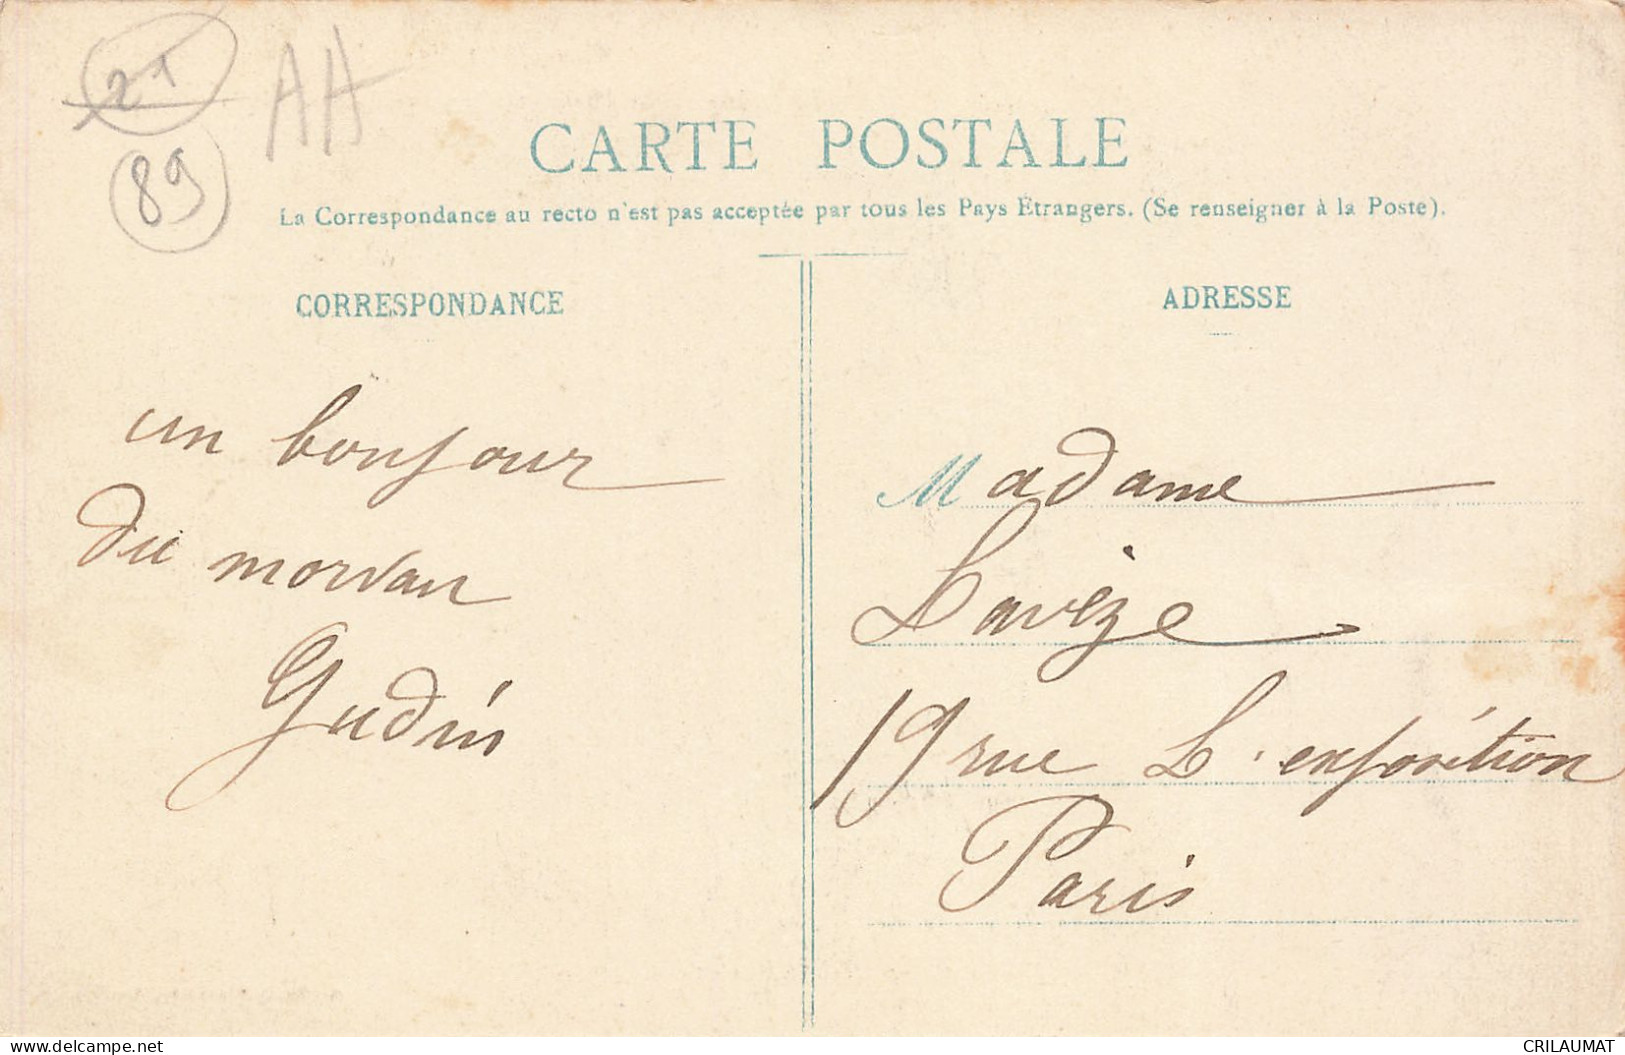 21
89
AH
CARTE POSTALE
La Correspondance au recto n'est pas acceptée par tous les Pays Étrangers. (Se renseigner à la Poste).
CORRESPONDANCE
un bonjour
du morvan
Gudin
ADRESSE
Madame
Lavèze
19 rue L'exposition
Paris
www.delcampe.net
CRILAUMAT